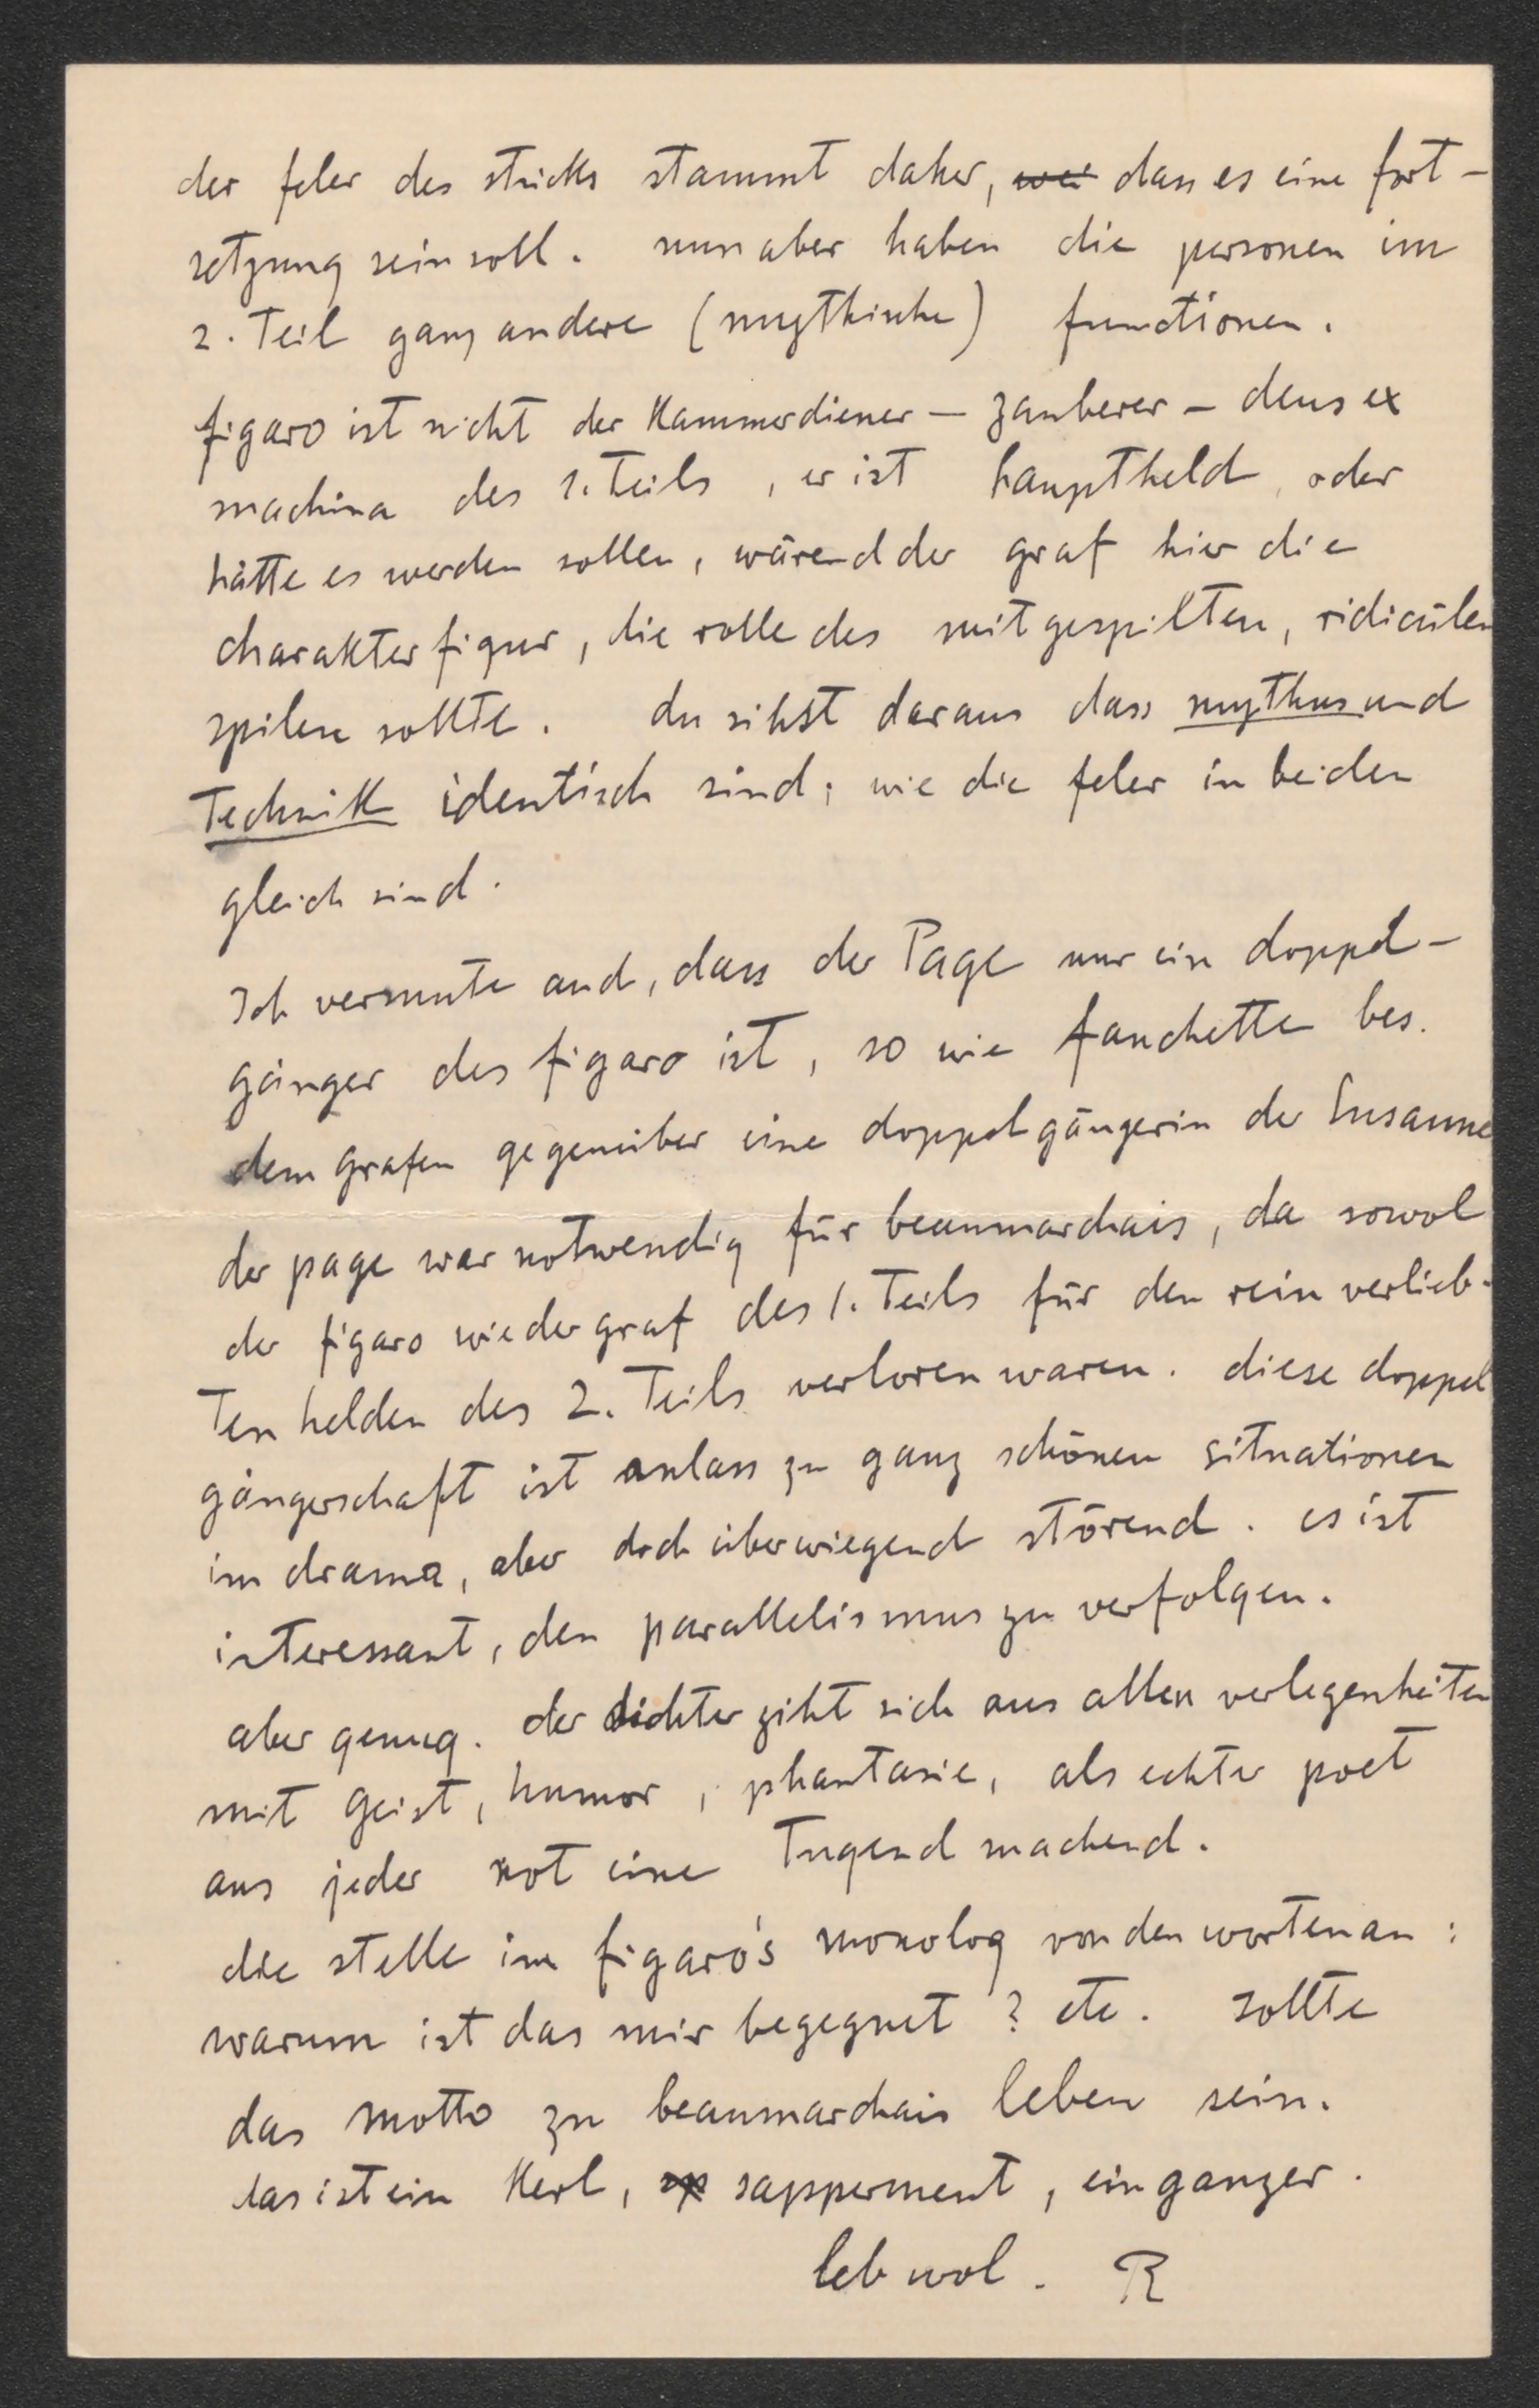 der feler des stücks stammt daher, wei dass es eine fort-
setzung sein soll. nun aber haben die personen im
2. Teil ganz andere (mythische) functionen.
figaro ist nicht der Kammerdiener – zauberer – deus ex
machina des 1. Teils, er ist hauptheld, oder
hätte es werden sollen, wärend der graf hier die
charakterfigur, die rolle des mitgespilten, ridicülen
spilen sollte. du sihst daraus dass mythus und
Technik identisch sind; wie die feler in beiden
gleich sind.
Ich vermute auch, dass der Page nur ein doppel-
gänger des figaro ist, so wie fanchette bes.
dem grafen gegenüber eine doppelgängerin der Susanne
der page war notwendig für beaumarchais, da sowol
der figaro wie der graf des 1. Teils für den rein verlieb-
Ten helden des 2. Teils verloren waren. diese doppel
gängerschaft ist anlass zu ganz schönen situationen
im drama, aber doch überwiegend störend. es ist
interessant, den parallelismus zu verfolgen.
aber genug. der dichter ziht sich aus allen verlegenheiten
mit geist, humor, phantasie, als echter poet
aus jeder not eine Tugend machend.
die stelle im figaro's monolog von den worten an:
warum ist das mir begegnet? etc. sollte
das motto zu beaumarchais leben sein.
das ist ein Kerl, sapperment, ein ganzer.
leb wol. R